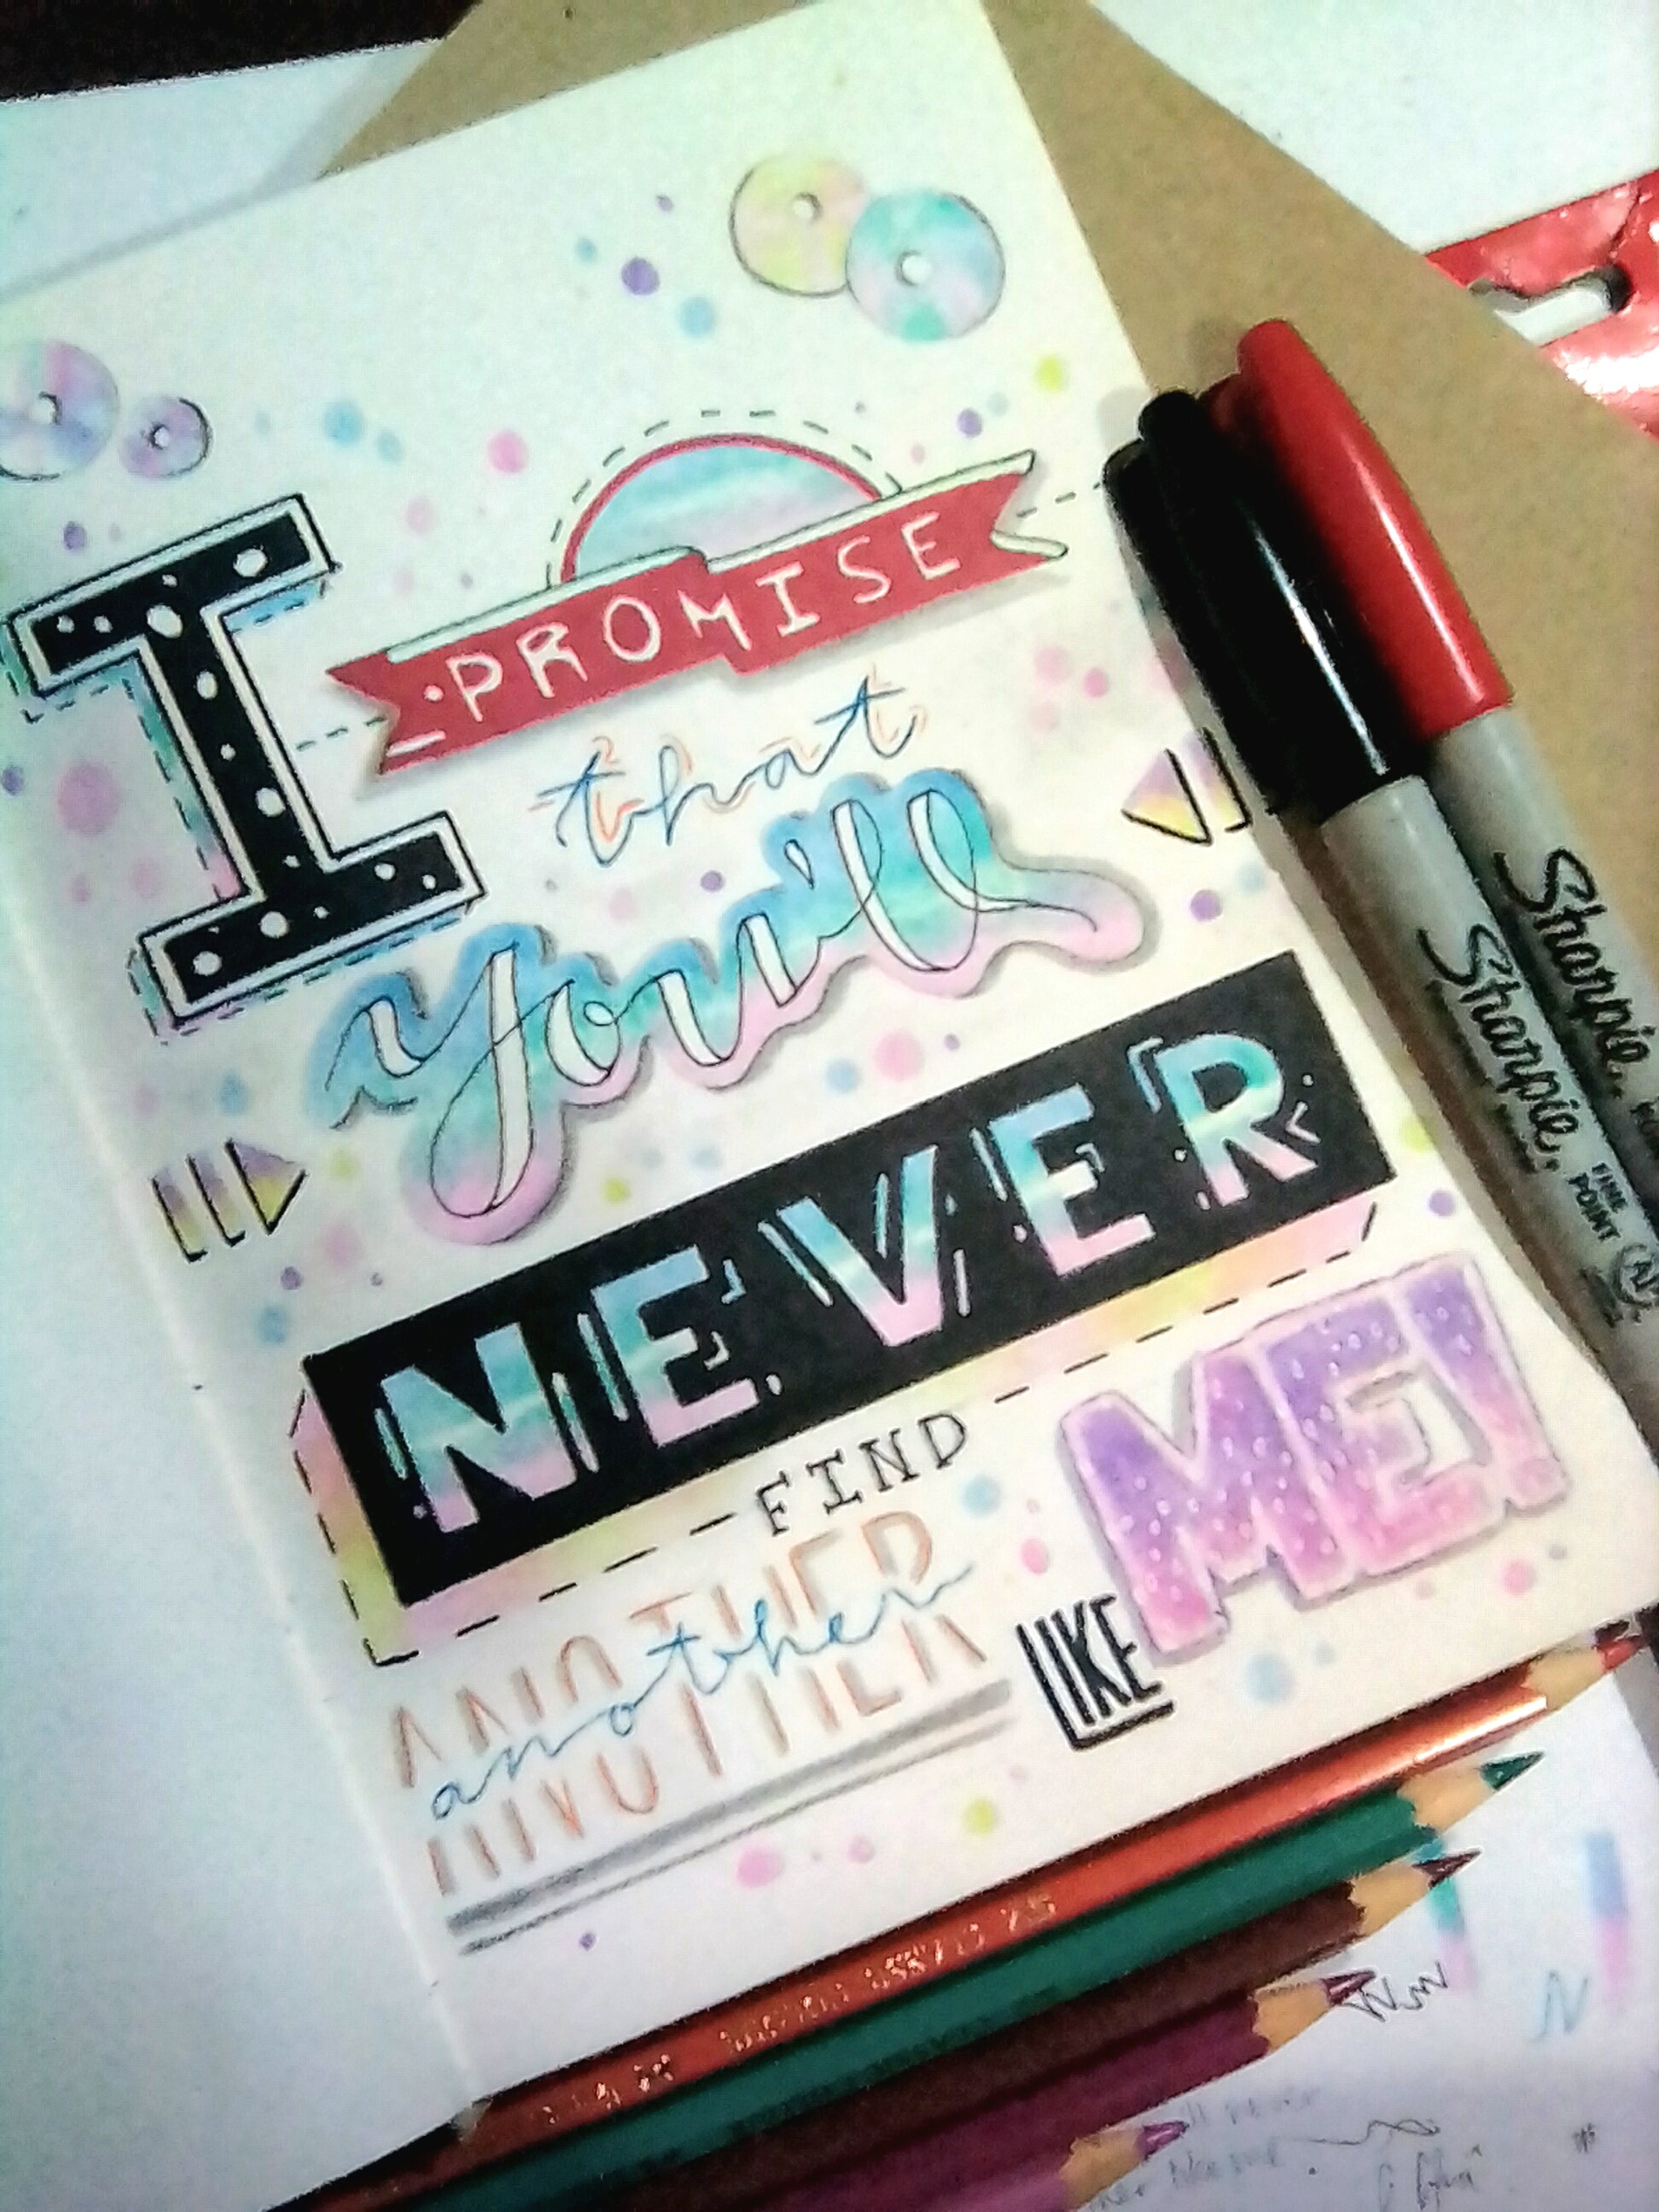 I
PROMISE
that
you'll
NEVER
FIND
ANOTHER
another
LIKE
ME!
Sharpie
Sharpie
FINE
POINT